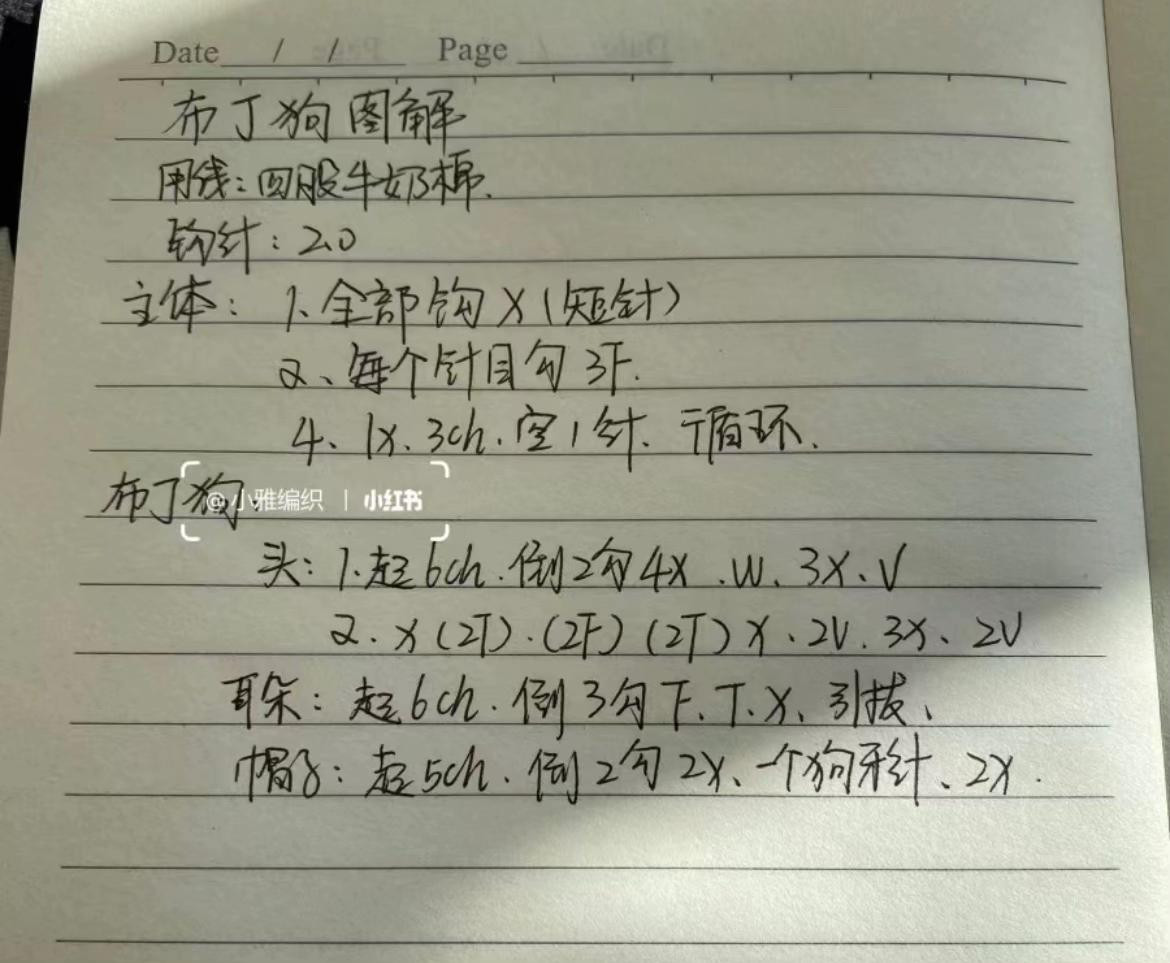 Date / / Page
布丁狗图解
用线:四股牛奶棉.
钩针:2.0
主体: 1、全部钩X(短针)
2、每个针目勾3F.
4、1x、3ch、空1针、循环.
布丁狗:
@小雅编织 | 小红书
头: 1.起6ch.倒2勾4X.W、3X、V
2.X(2T).(2F)(2T)X、2V.3X、2V
耳朵: 起6ch.倒3勾F、T、X、引拔、
帽子: 起5ch.倒2勾2X、一个狗牙针、2X.